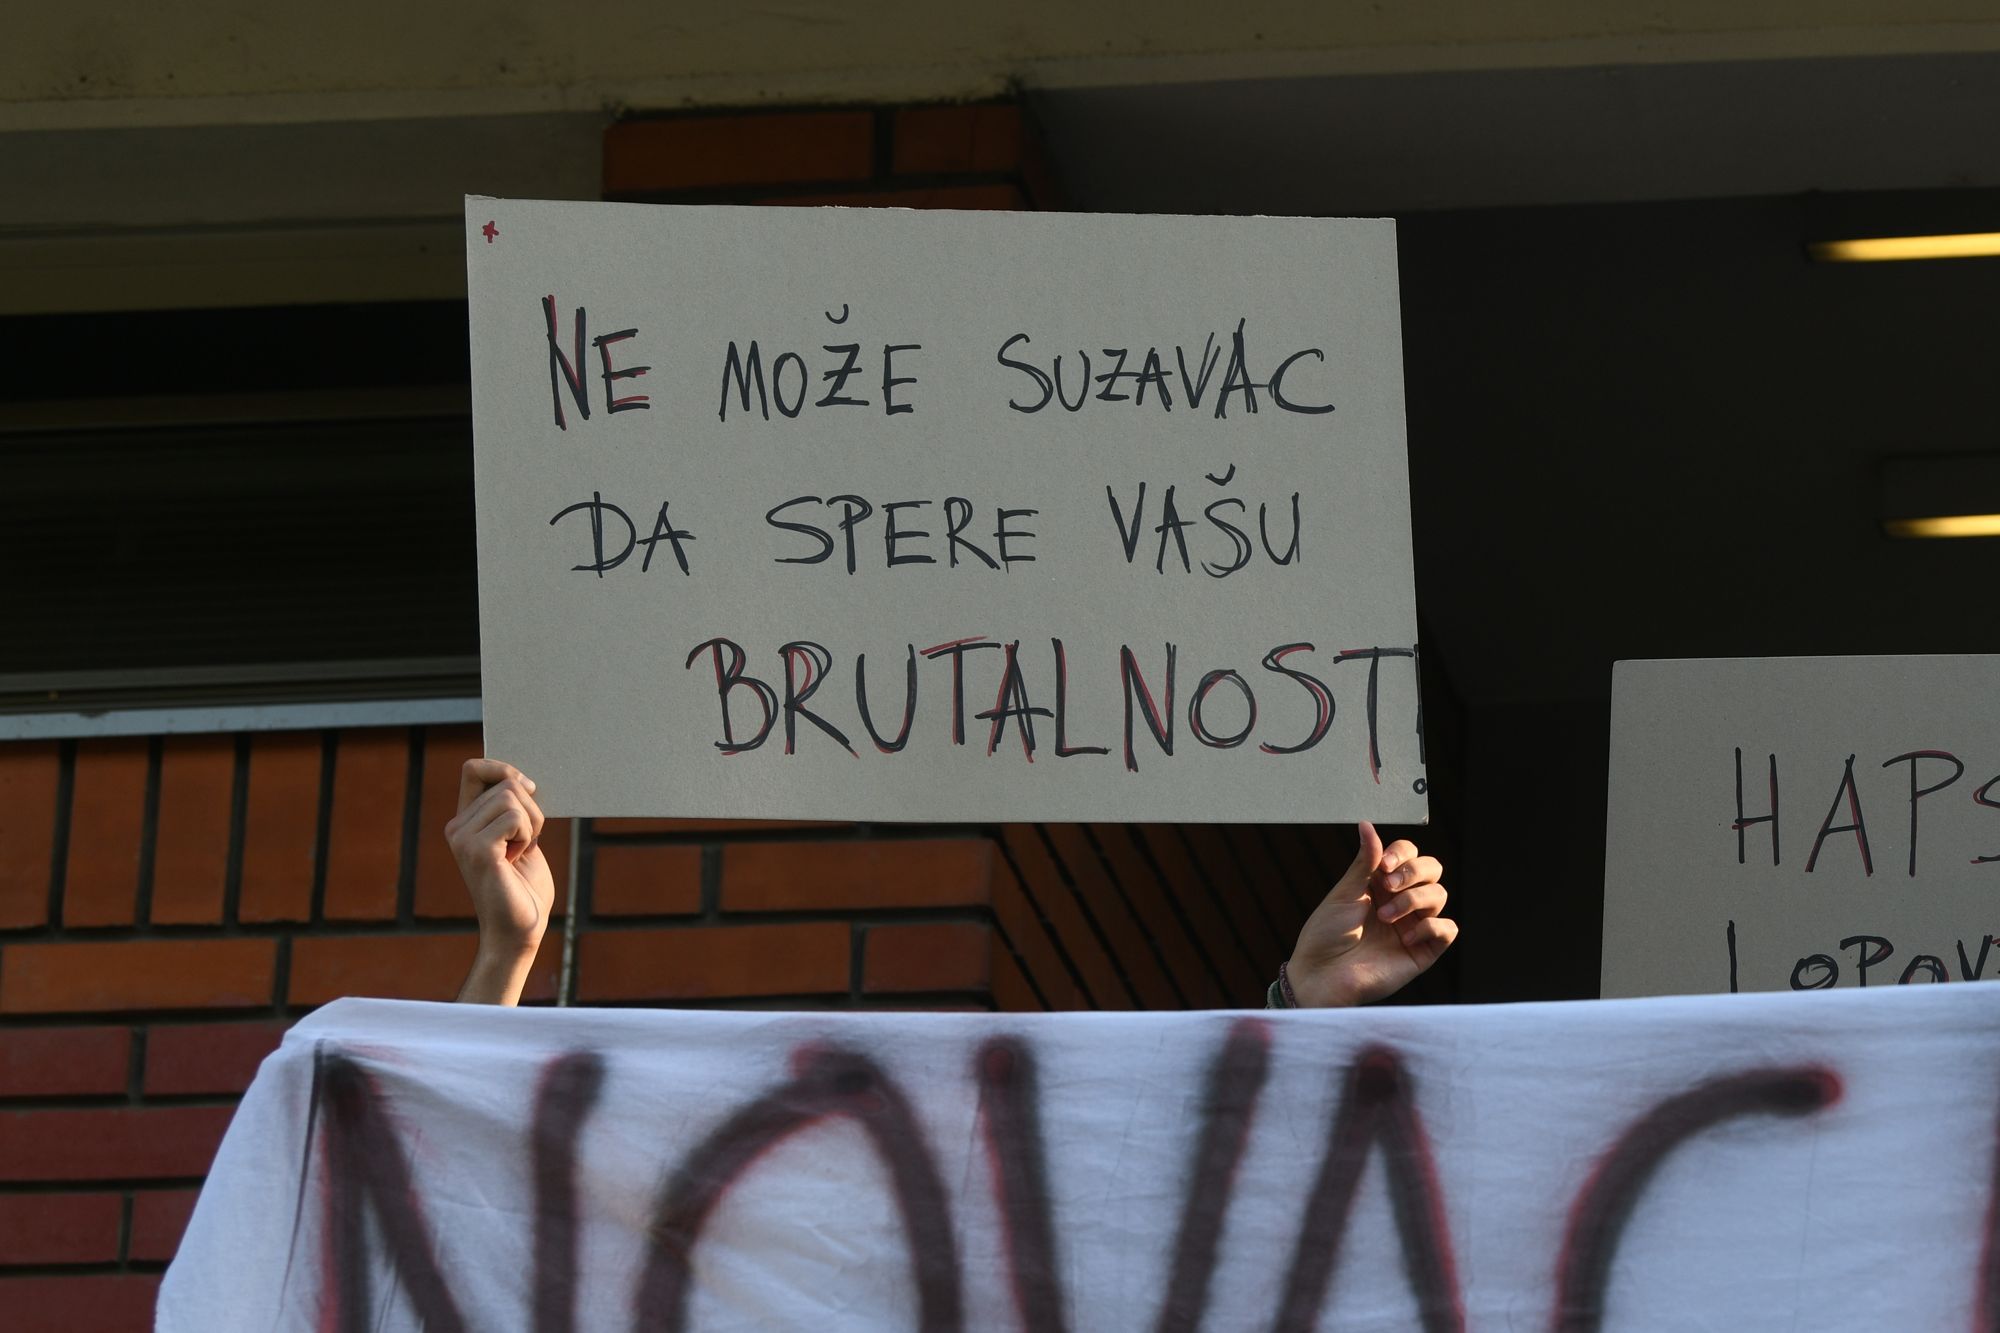 NE MOŽE SUZAVAC
DA SPERE VAŠU
BRUTALNOST!
HAPS
LOPOV
NOVAC